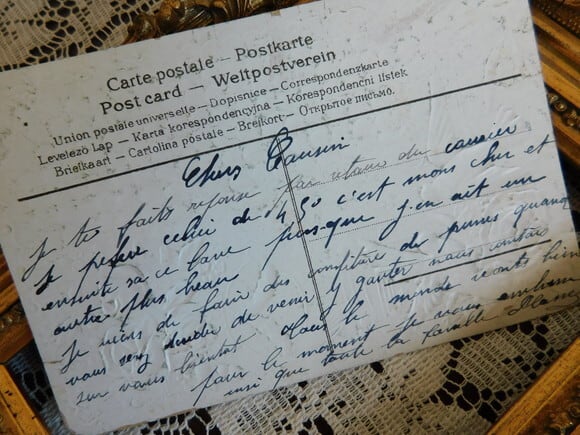 Carte postale — Postkarte
Post card — Weltpostverein
Union postale universelle — Dopisnice — Correspondenzkarte
Levelező Lap — Karta korespondencyjna — Korespondenční lístek
Briefkaart — Cartolina postale — Brefkort — Открытое письмо.
Chers Cousin
Je te faits reponse par retour du courrier
Je prefere celui de 4 50 c'est moins cher et
ensuite sa ce lave puis que j'en ait un
autre plus beau
Je viens de fair des confiture de prunes quand
vous venir y gouter nous
sur vous bientot Claus le monde bien
pour le moment je vous
insi que toute la famille